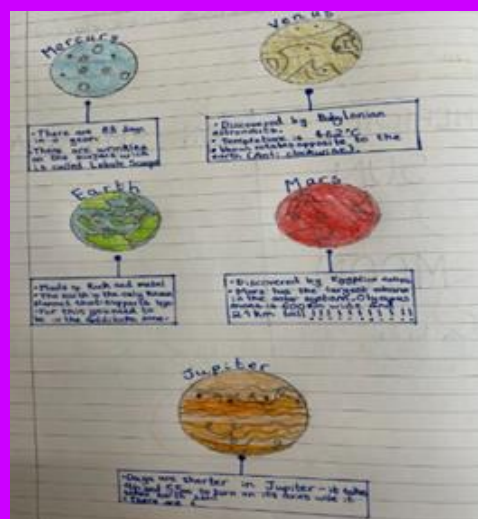 Mercury
• There are 88 days
in a year.
• There are wrinkles
on the surface which
is called Lobate Scarps
Venus
• Discovered by Babylonian
astronauts.
• Temperature is 462°C
• Venus rotates opposite to the
earth (Anti-clockwise).
Earth
• Made of Rock and metal
• The earth is the only known
planet that
• For this you need to
be in the zone.
Mars
• Discovered by Egyptian
• Mars has the largest
in the solar system. Olympus
is 600km wide and
21km tall
Jupiter
• Days are shorter in Jupiter - it takes
9h and 55m to turn on its axis while it
takes earth 24h.
• There are